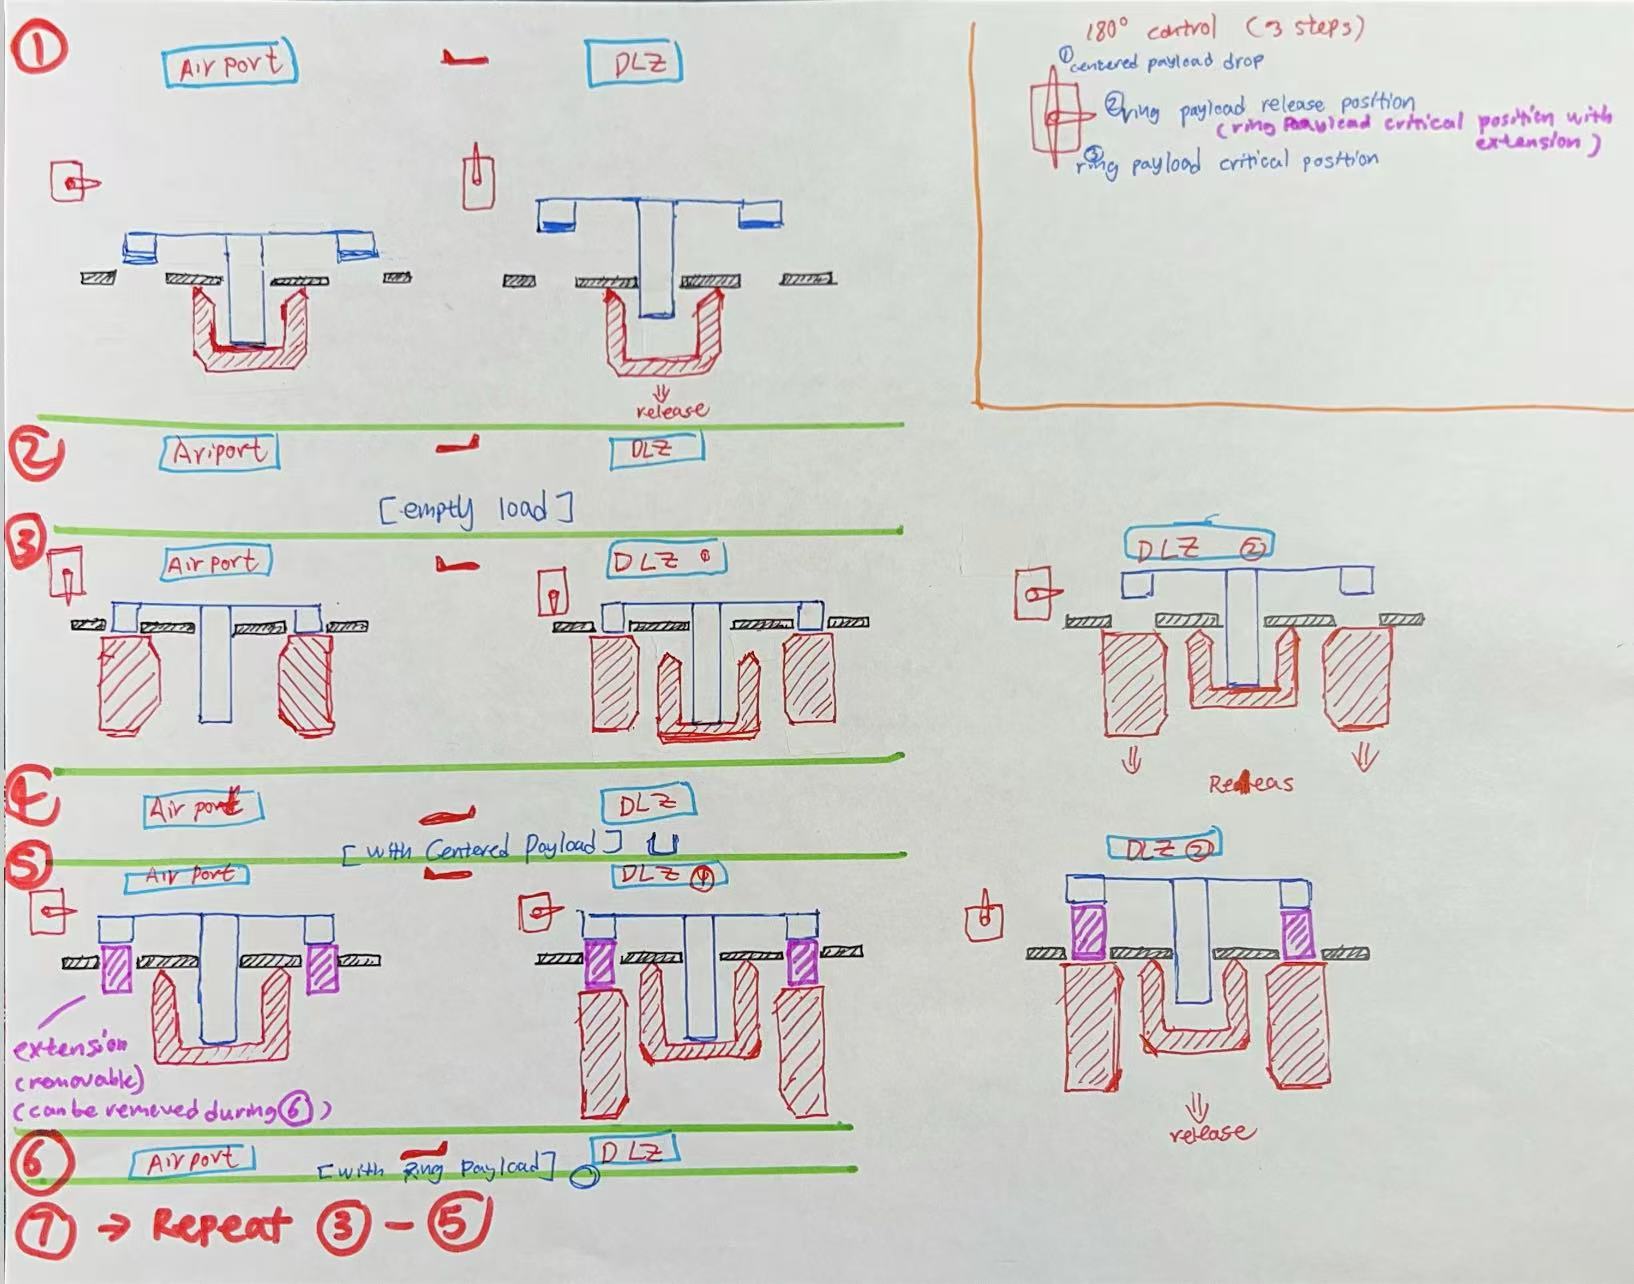 ①
Airport
DLZ
180° control (3 steps)
① centered payload drop
② ring payload release position
(ring payload critical position with
extension)
③ ring payload critical position
release
②
Ariport
DLZ
[empty load]
③
Airport
DLZ ①
DLZ ②
4
Airport
DLZ
[with Centered Payload]
⑤
Air port
DLZ ④
DLZ ②
extension
(removable)
(can be removed during ⑥)
release
⑥
Airport
[with Ring payload]
DLZ
⑦ → Repeat ③ - ⑤